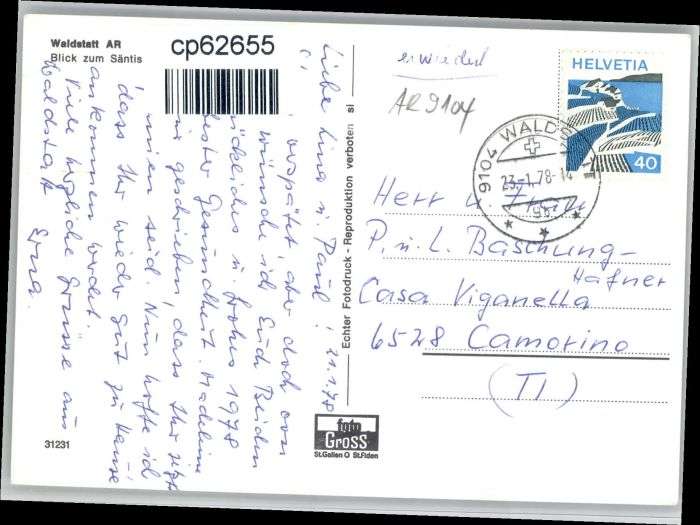 Waldstatt AR
Blick zum Säntis
cp62655
Liebe Lina u. Paul! 21.1.78
verspätet, aber doch von
wünsche ich Euch Beiden
glückliches u. frohes 1978
Gesundheit. Madeleine
geschrieben, dass Ihr jetzt
seid. Nun hoffe ich
dass Ihr wieder gut zu Hause
ankommen werdet.
Viele herzliche Grüsse aus
Waldstatt Erna.
31231
Echter Fotodruck - Reproduktion verboten si
foto
GROSS
St.Gallen O St.Fiden
erwiedert
AR 9104
HELVETIA
40
9104 WALDSTATT
23.-1.78-14
Herr u. Frau
P. u. L. Baschung-
Hafner
Casa Viganella
6528 Camorino
(TI)